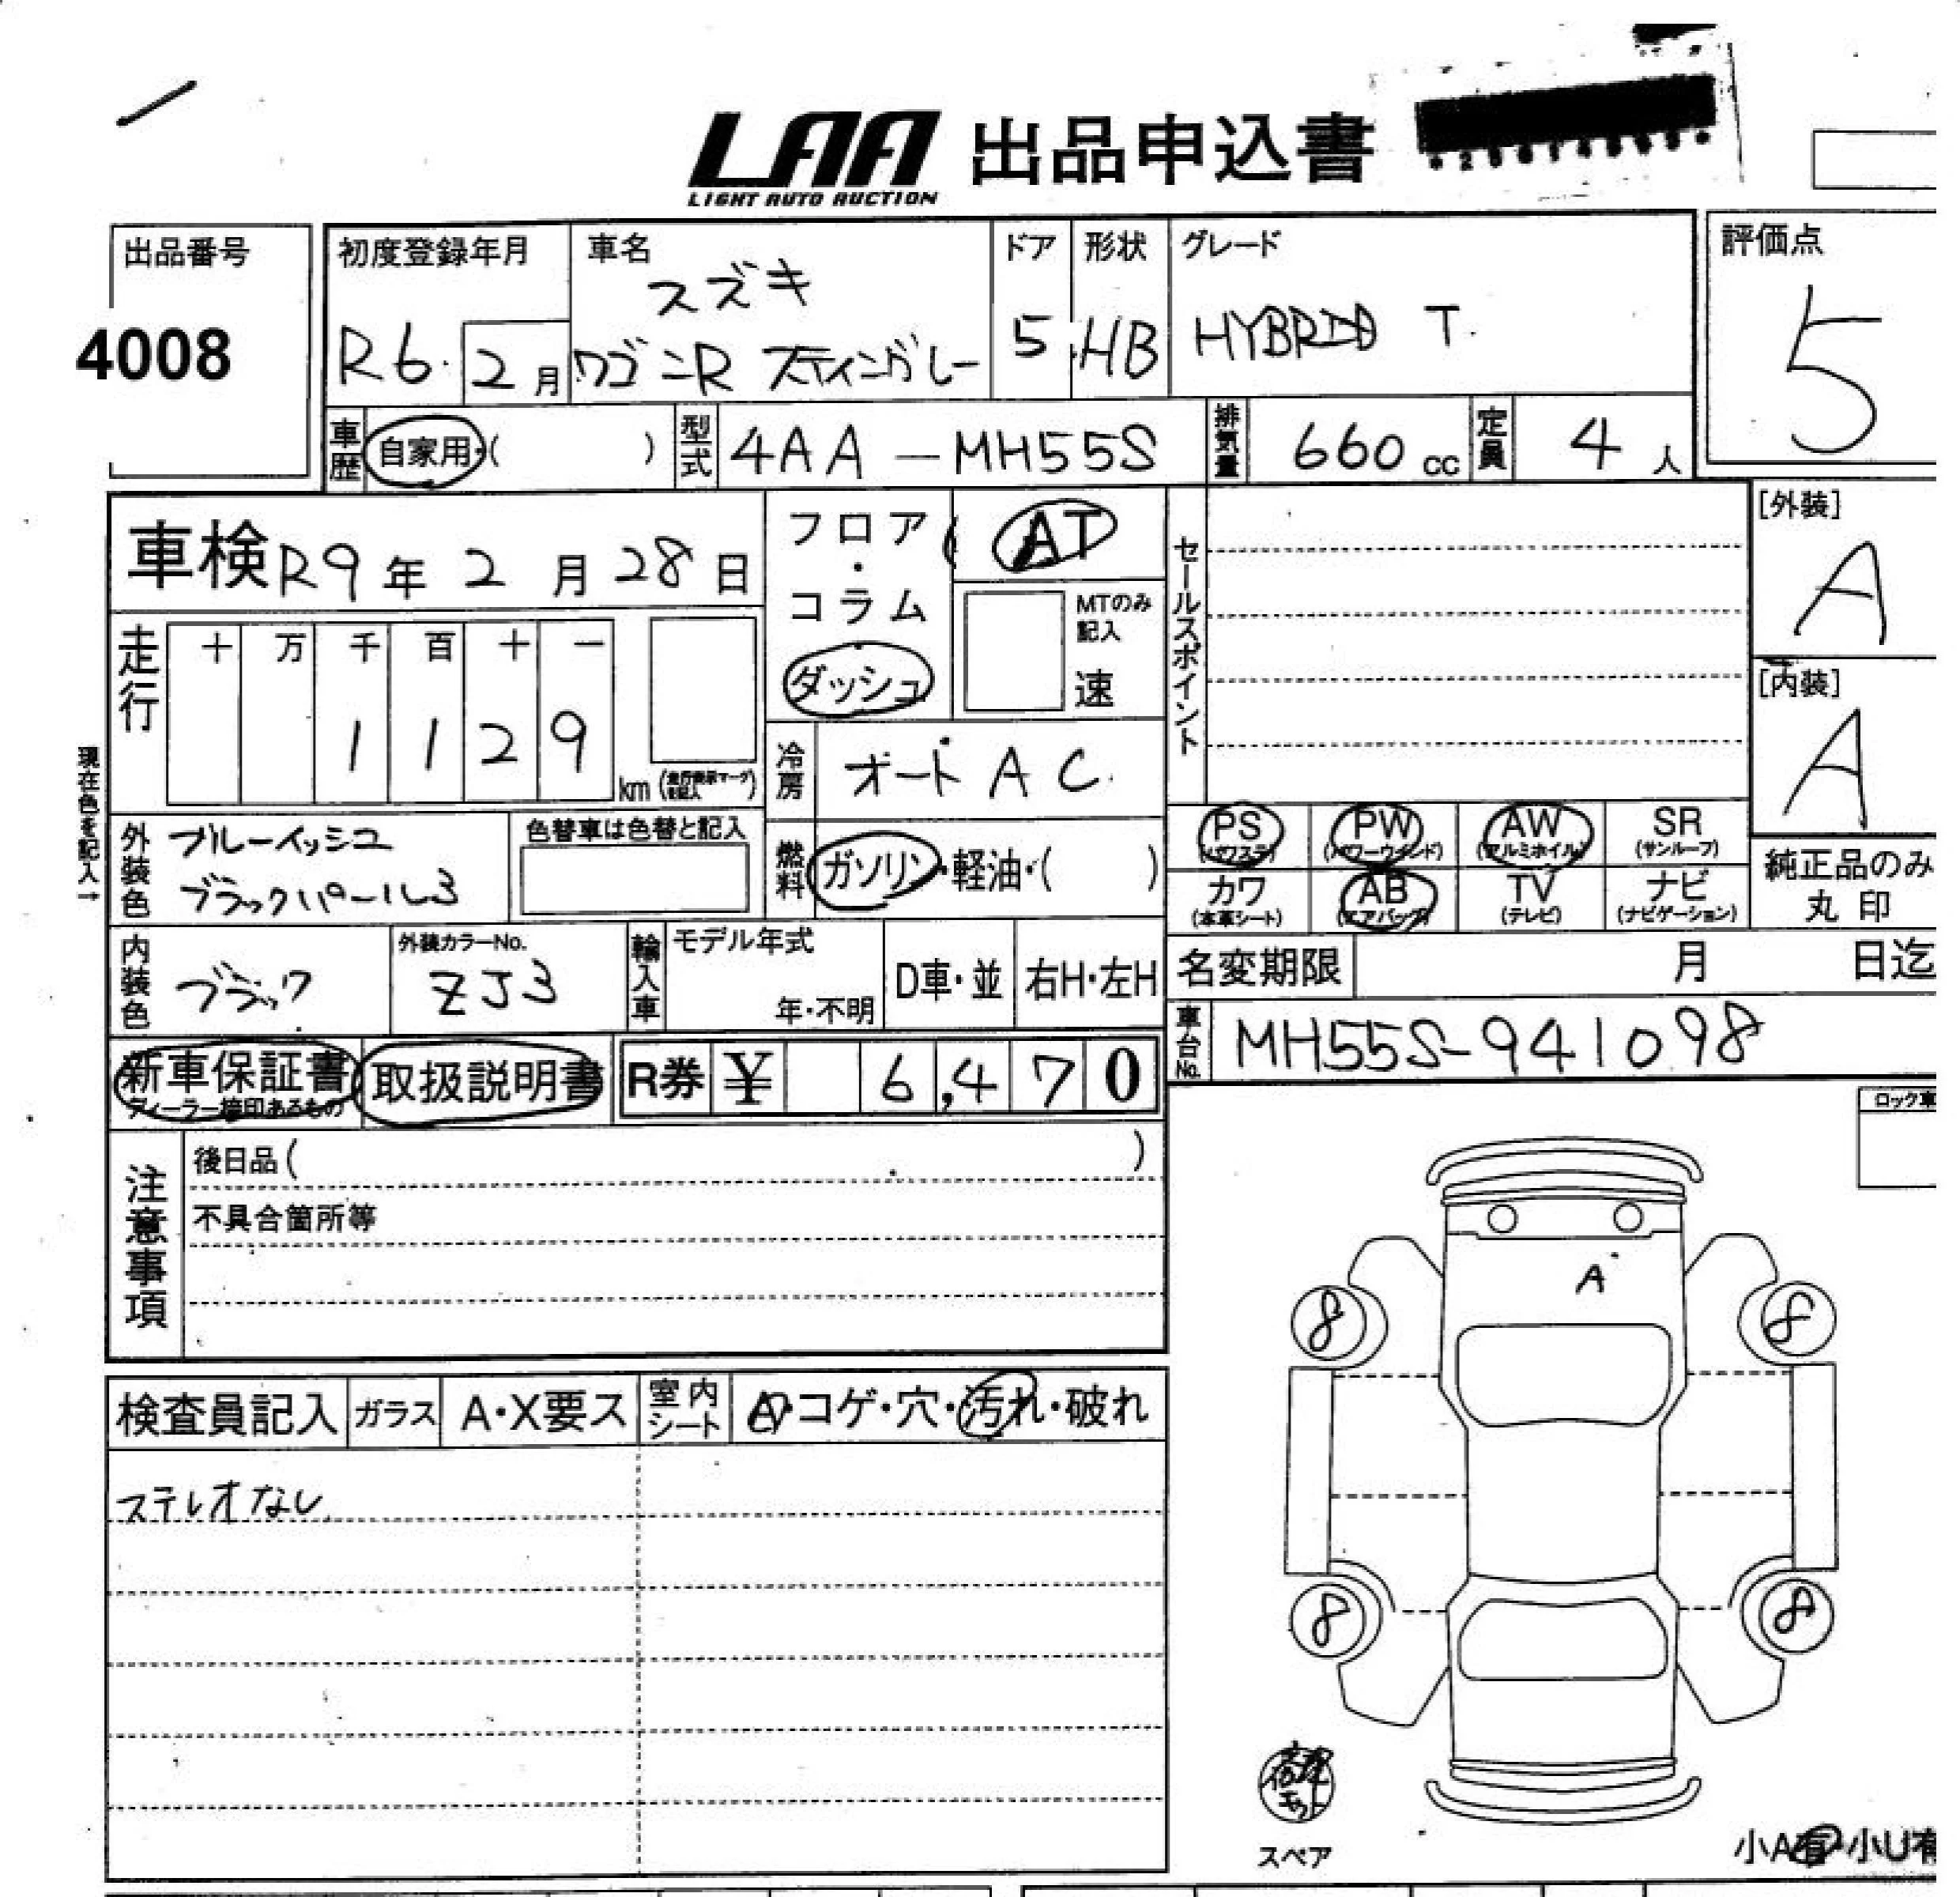 LAA 出品申込書
LIGHT AUTO AUCTION
出品番号
4008
初度登録年月
R6 2月
車名
スズキ
ワゴンR スティングレー
ドア
5
形状
HB
グレード
HYBRID T
評価点
5
車歴 自家用・( )
型式 4AA-MH55S
排気量 660cc
定員 4人
車検 R9年2月28日
フロア・コラム
ダッシュ
AT
MTのみ記入
速
セールスポイント
[外装]
A
[内装]
A
走行
十 万 千 百 十 一
1 1 2 9 km
冷房 オートAC
現在色を記入→
外装色 ブルーイッシュ
ブラックパール3
色替車は色替と記入
燃料 ガソリン・軽油・( )
PS (パワステ)
PW (パワーウインド)
AW (アルミホイル)
SR (サンルーフ)
カワ (本革シート)
AB (エアバッグ)
TV (テレビ)
ナビ (ナビゲーション)
純正品のみ
丸印
内装色 ブラック
外装カラーNo.
ZJ3
輸入車
モデル年式
年・不明
D車・並
右H・左H
名変期限 月 日迄
車台No. MH55S-941098
新車保証書
ディーラー捺印あるもの
取扱説明書
R券 ¥ 6,470
ロック車
注意事項
後日品( )
不具合箇所等
A
8 8
8 8
検査員記入 ガラス A・X要ス
室内シート コゲ・穴・汚れ・破れ
ステレオなし
スペア
小A有 小U有